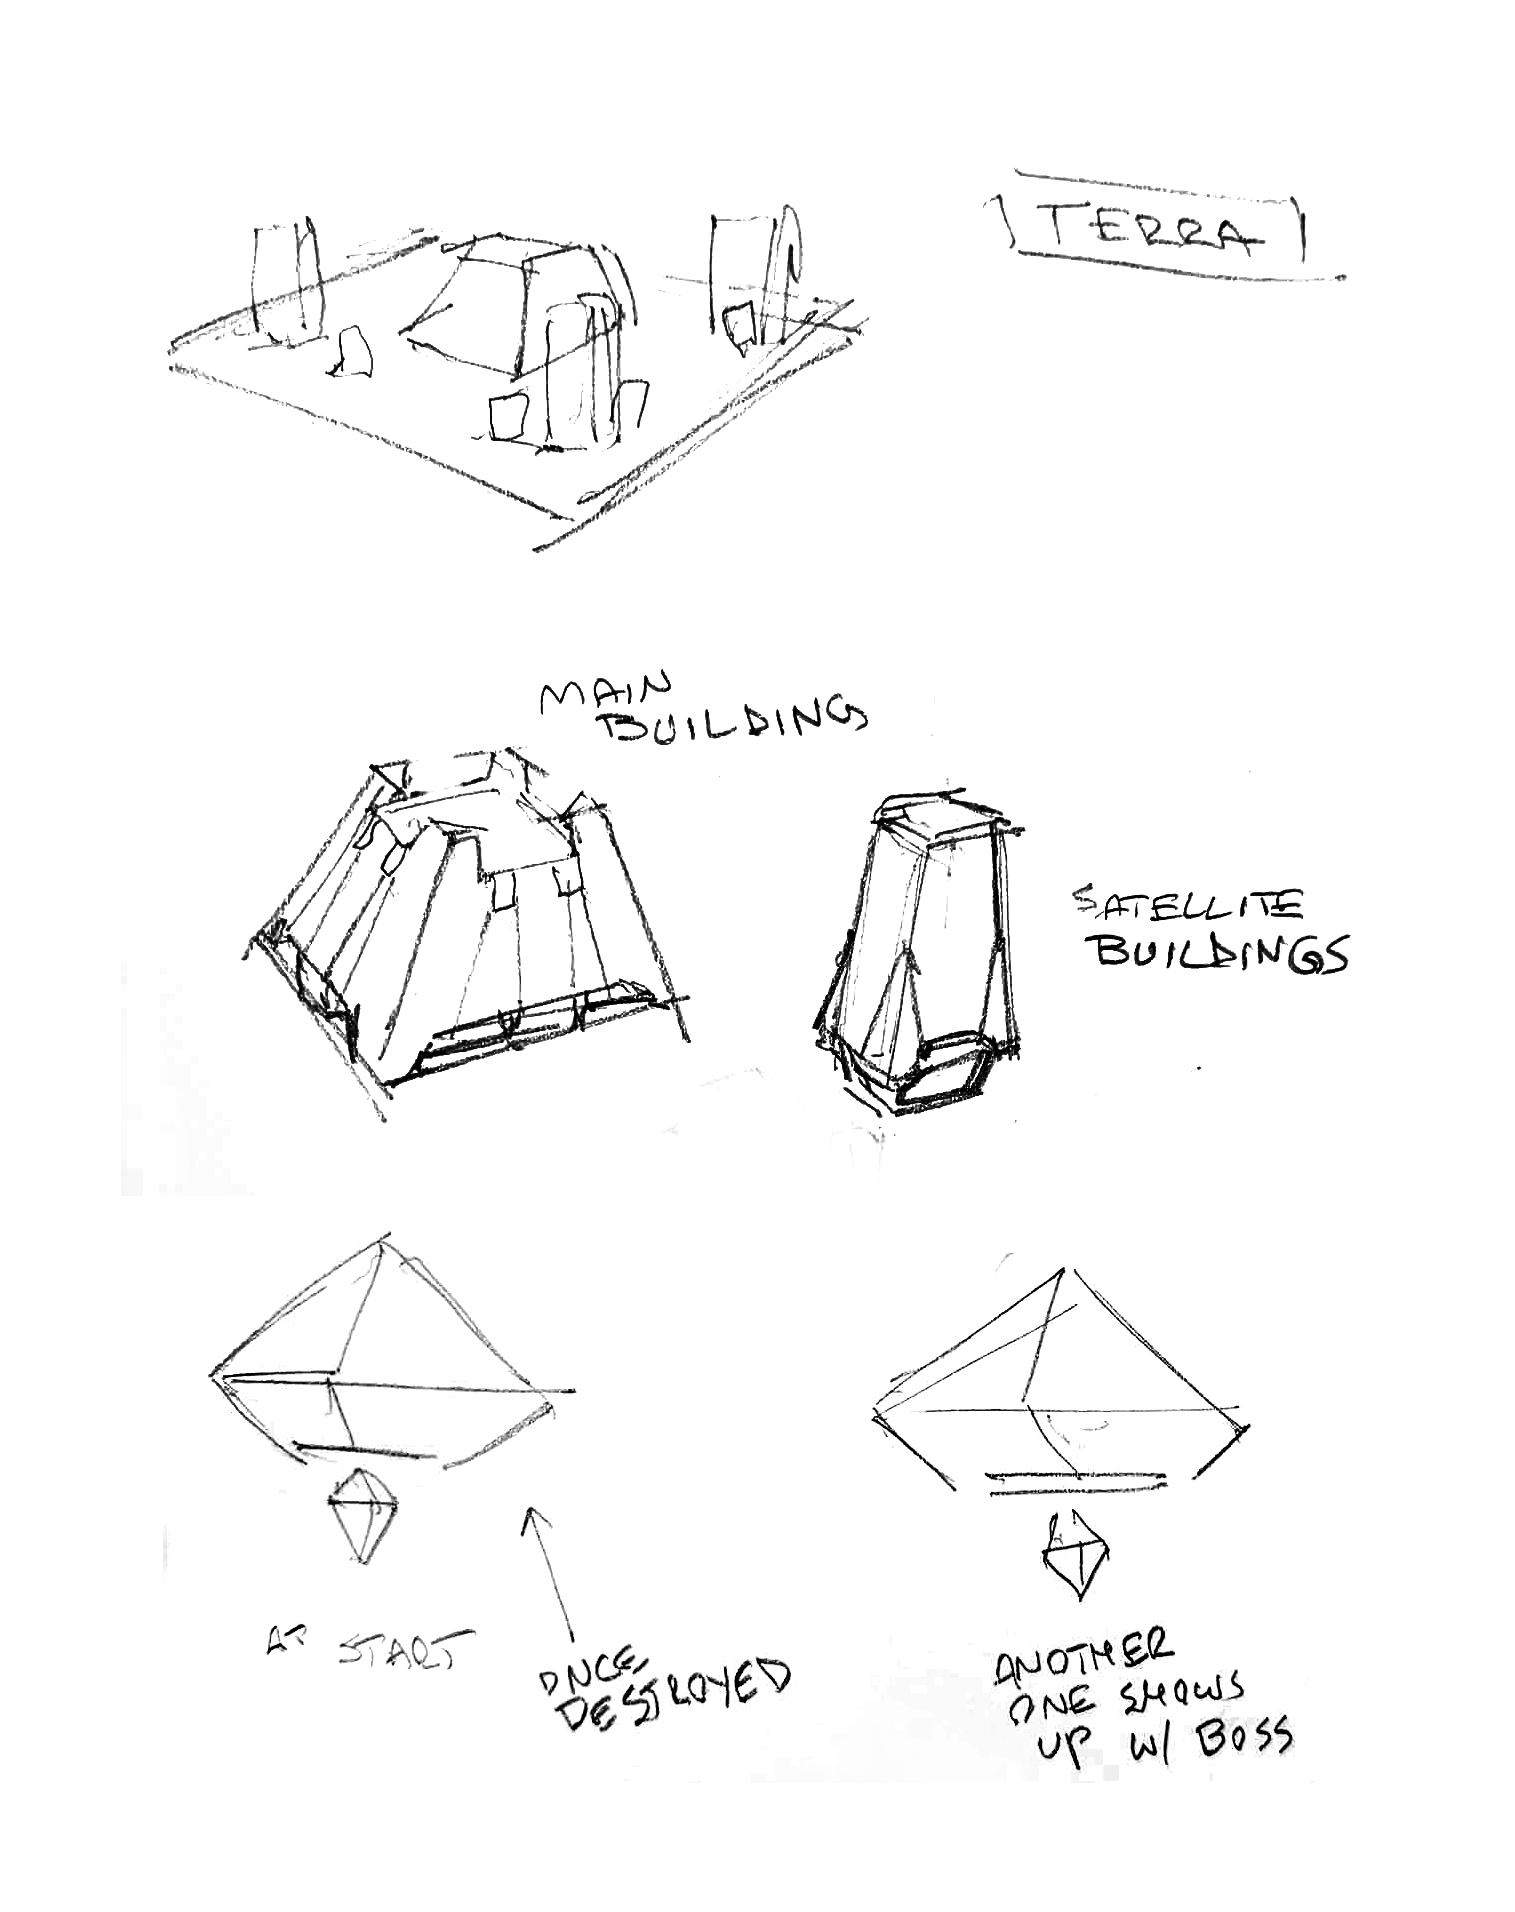 TERRA
MAIN
BUILDINGS
SATELLITE
BUILDINGS
AT START
ONCE
DESTROYED
ANOTHER
ONE SHOWS
UP W/ BOSS